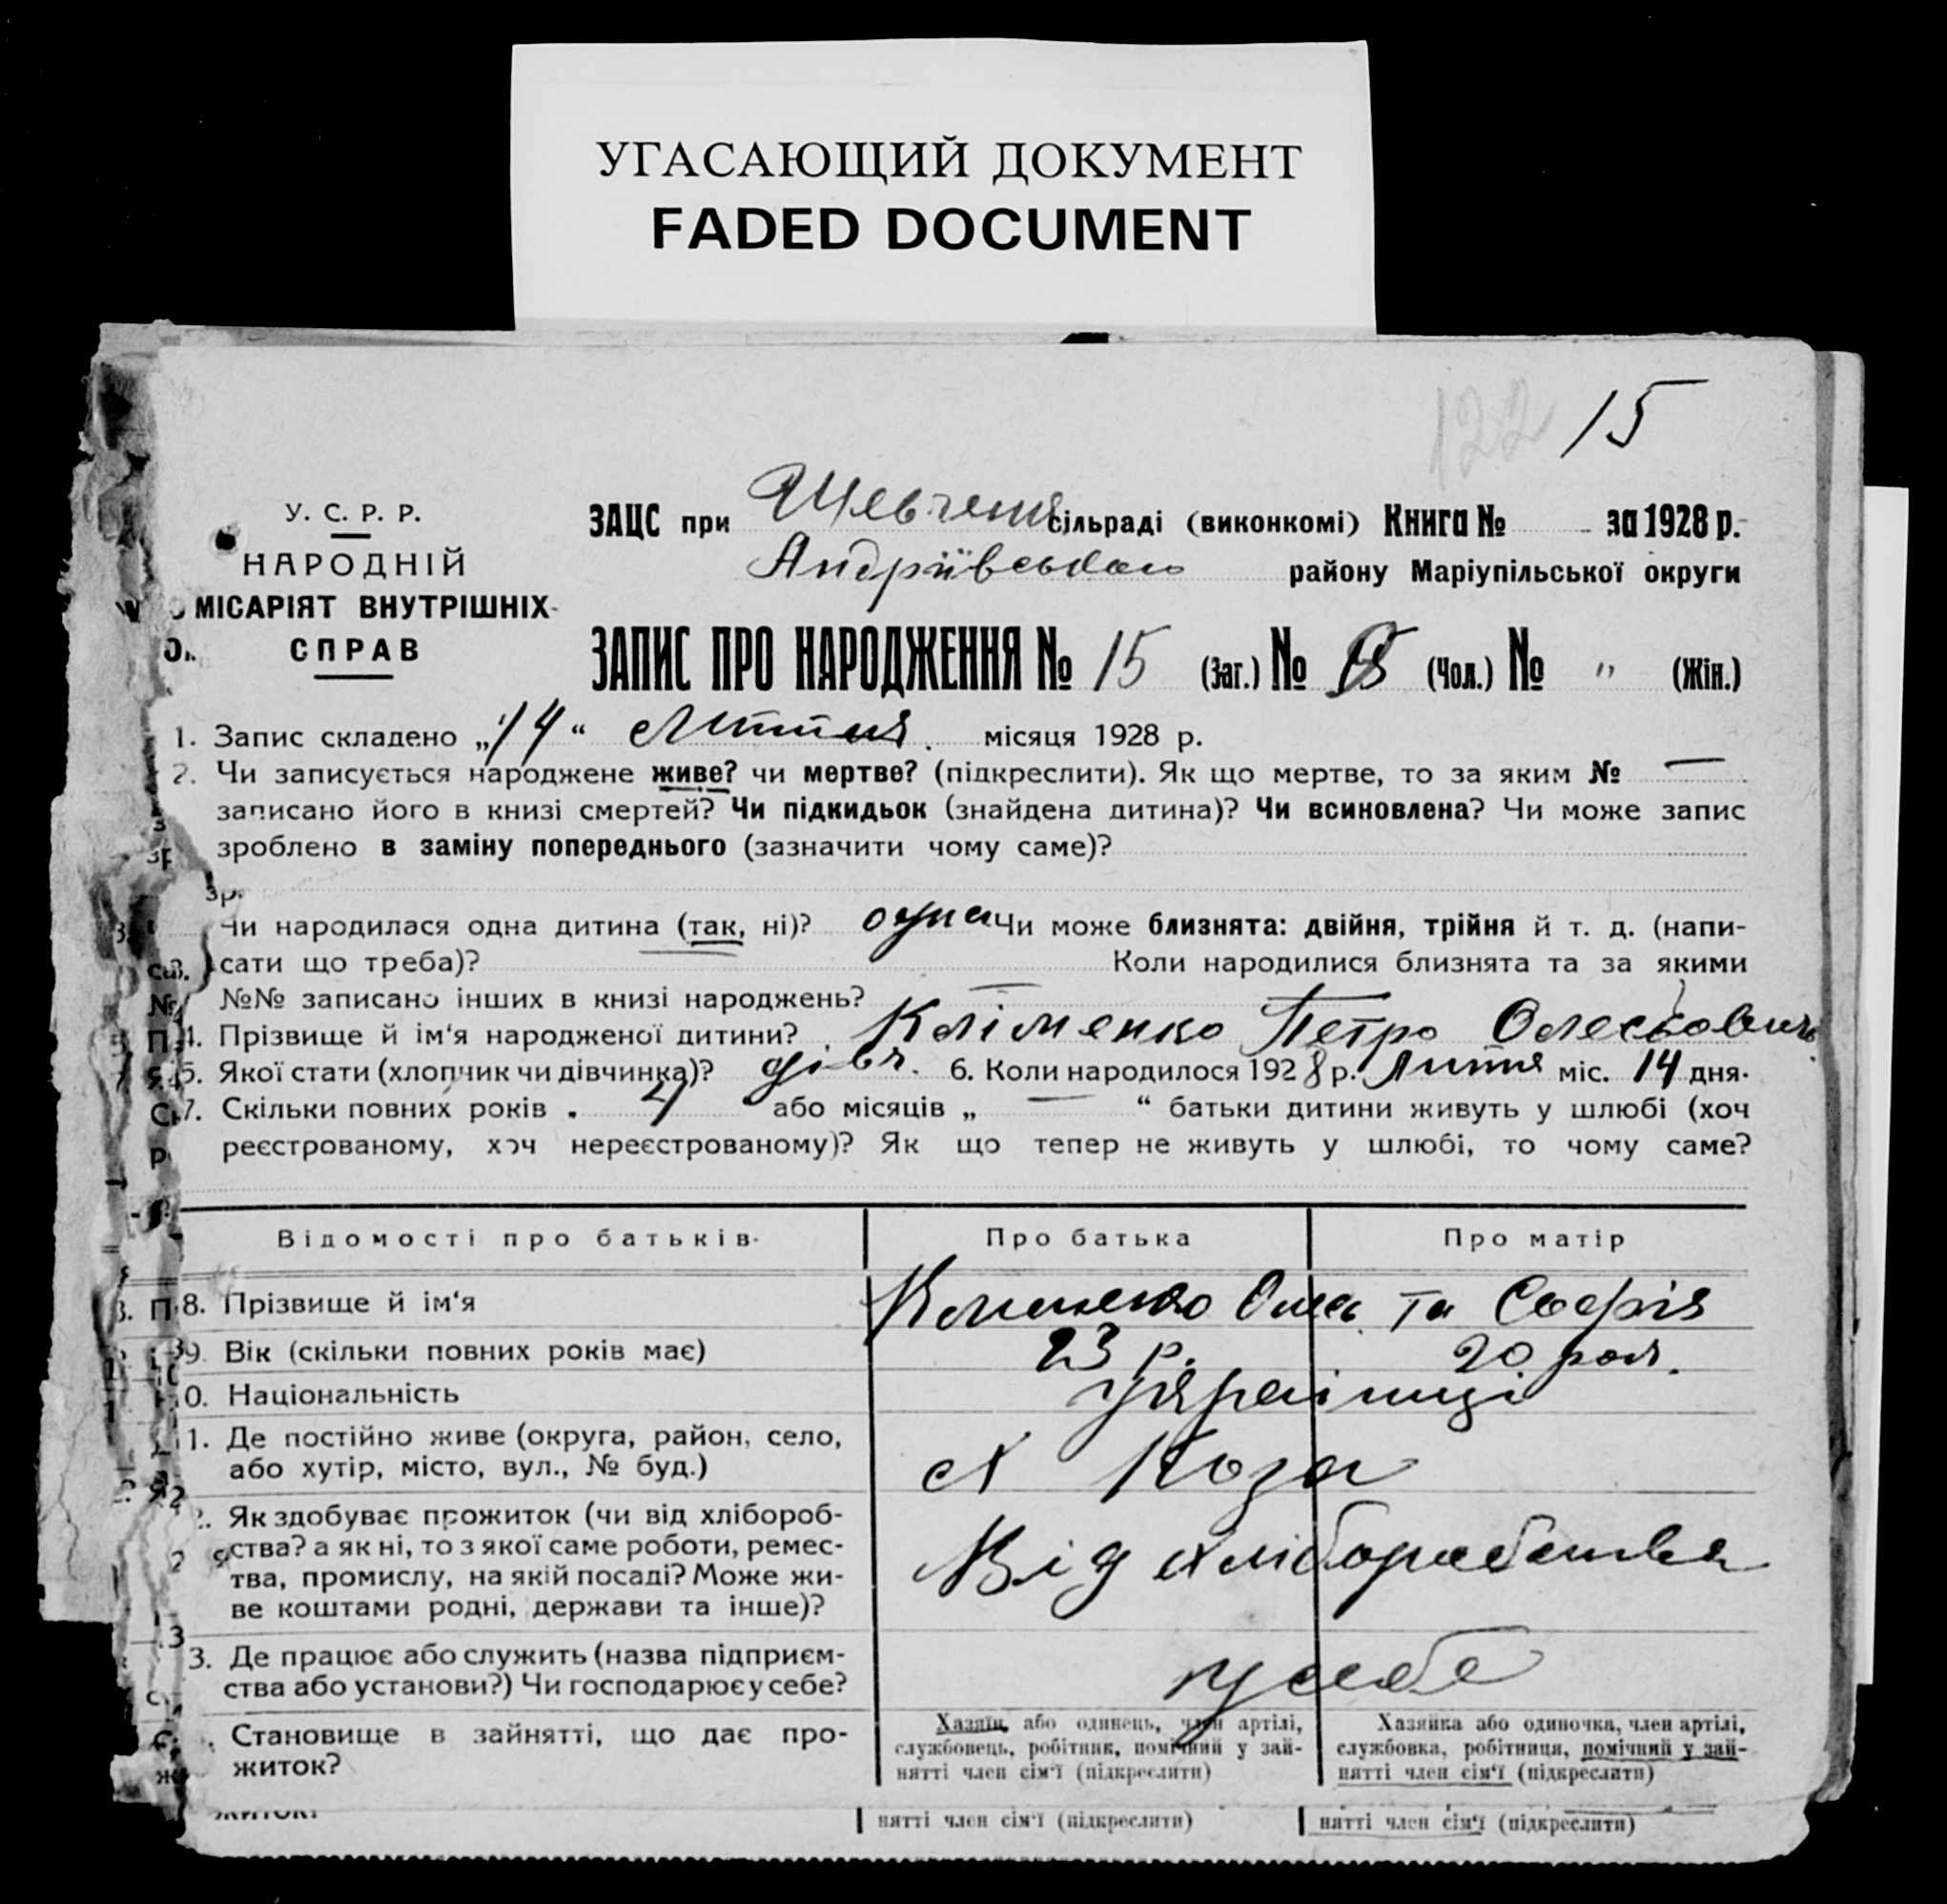 УГАСАЮЩИЙ ДОКУМЕНТ
FADED DOCUMENT
122 15
У. С. Р. Р.
НАРОДНІЙ
МІСАРІЯТ ВНУТРІШНІХ
СПРАВ
ЗАЦС при Шевченк сільраді (виконкомі) Книга № за 1928 р.
Андріївського району Маріупільської округи
ЗАПИС ПРО НАРОДЖЕННЯ № 15 (Заг.) № (Чол.) № " (Жін.)
1. Запис складено „14“ Липня місяця 1928 р.
2. Чи записується народжене живе? чи мертве? (підкреслити). Як що мертве, то за яким № —
записано його в книзі смертей? Чи підкидьок (знайдена дитина)? Чи всиновлена? Чи може запис
зроблено в заміну попереднього (зазначити чому саме)?
Чи народилася одна дитина (так, ні)? одна Чи може близнята: двійня, трійня й т. д. (напи-
сати що треба)? Коли народилися близнята та за якими
№№ записано інших в книзі народжень? —
4. Прізвище й ім‘я народженої дитини? Кліменко Петро Олеськович
5. Якої стати (хлопчик чи дівчинка)? дівч. 6. Коли народилося 1928 р. Липня міс. 14 дня.
7. Скільки повних років . або місяців „ — “ батьки дитини живуть у шлюбі (хоч
реєстрованому, хоч нереєстрованому)? Як що тепер не живуть у шлюбі, то чому саме?
Відомості про батьків. Про батька Про матір
8. Прізвище й ім‘я Клименко Олесь та Софія
9. Вік (скільки повних років має) 23 р. 20 рок.
0. Національність українці
1. Де постійно живе (округа, район, село,
або хутір, місто, вул., № буд.) х
2. Як здобуває прожиток (чи від хлібороб-
ства? а як ні, то з якої саме роботи, ремес-
тва, промислу, на якій посаді? Може жи-
ве коштами родні, держави та інше)? Від хліборобства
3. Де працює або служить (назва підприєм-
ства або установи?) Чи господарює у себе? у себе
Становище в зайнятті, що дає про-
житок?
Хазяїн, або одинець, член артілі,
службовець, робітник, помічний у зай-
нятті член сім‘ї (підкреслити)
Хазяйка або одиночка, член артілі,
службовка, робітниця, помічний у зай-
нятті член сім‘ї (підкреслити)
житок?
нятті член сім‘ї (підкреслити) нятті член сім‘ї (підкреслити)